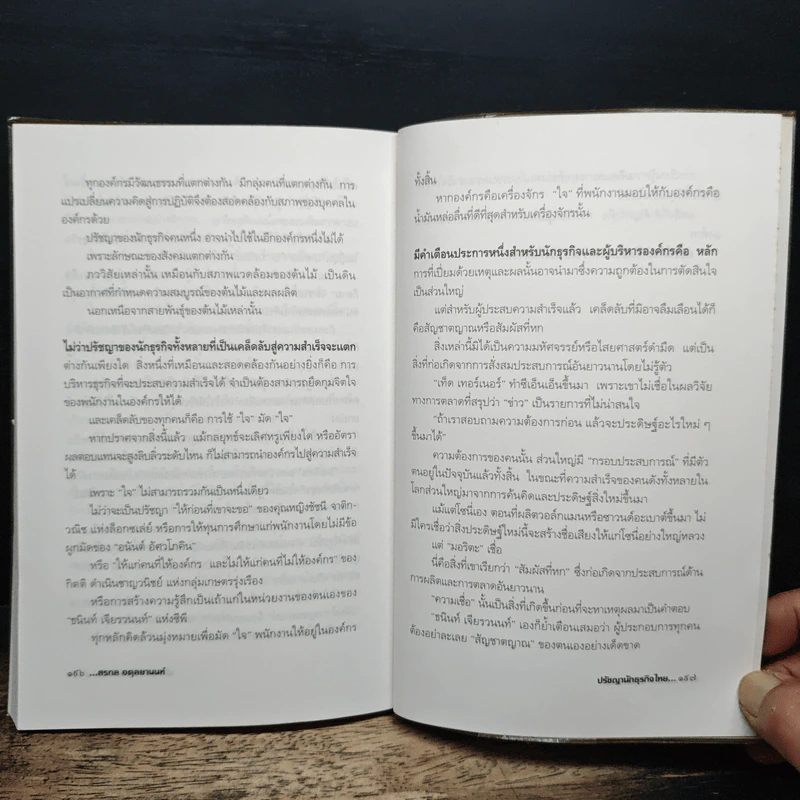 ทุกองค์กรมีวัฒนธรรมที่แตกต่างกัน มีกลุ่มคนที่แตกต่างกัน การ
แปรเปลี่ยนความคิดสู่การปฏิบัติจึงต้องสอดคล้องกับสภาพของบุคคลใน
องค์กรด้วย
ปรัชญาของนักธุรกิจคนหนึ่ง อาจนำไปใช้ในอีกองค์กรหนึ่งไม่ได้
เพราะลักษณะของสังคมแตกต่างกัน
ภววิสัยเหล่านั้น เหมือนกับสภาพแวดล้อมของต้นไม้ เป็นดิน
เป็นอากาศที่กำหนดความสมบูรณ์ของต้นไม้และผลผลิต
นอกเหนือจากสายพันธุ์ของต้นไม้เหล่านั้น
ไม่ว่าปรัชญาของนักธุรกิจทั้งหลายที่เป็นเคล็ดลับสู่ความสำเร็จจะแตก
ต่างกันเพียงใด สิ่งหนึ่งที่เหมือนและสอดคล้องกันอย่างยิ่งก็คือ การ
บริหารธุรกิจที่จะประสบความสำเร็จได้ จำเป็นต้องสามารถยึดกุมจิตใจ
ของพนักงานในองค์กรให้ได้
และเคล็ดลับของทุกคนก็คือ การใช้ "ใจ" มัด "ใจ"
หากปราศจากสิ่งนี้แล้ว แม้กลยุทธ์จะเลิศหรูเพียงใด หรืออัตรา
ผลตอบแทนจะสูงลิบลิ่วระดับไหน ก็ไม่สามารถนำองค์กรไปสู่ความสำเร็จ
ได้
เพราะ "ใจ" ไม่สามารถรวมกันเป็นหนึ่งเดียว
ไม่ว่าจะเป็นปรัชญา "ให้ก่อนที่เขาจะขอ" ของคุณหญิงชัชนี จาติก-
วณิช แห่งล็อกซเล่ย์ หรือการให้ทุนการศึกษาแก่พนักงานโดยไม่มีข้อ
ผูกมัดของ "อนันต์ อัศวโภคิน"
หรือ "ให้แก่คนที่ให้องค์กร และไม่ให้แก่คนที่ไม่ให้องค์กร" ของ
กิตติ ดำเนินชาญวนิชย์ แห่งกลุ่มเกษตรรุ่งเรือง
หรือการสร้างความรู้สึกเป็นเถ้าแก่ในหน่วยงานของตนเองของ
"ธนินท์ เจียรวนนท์" แห่งซีพี
ทุกหลักคิดล้วนมุ่งหมายเพื่อมัด "ใจ" พนักงานให้อยู่ในองค์กร
๑๙๖ ...สรกล อดุลยานนท์
ทั้งสิ้น
หากองค์กรคือเครื่องจักร "ใจ" ที่พนักงานมอบให้กับองค์กรคือ
น้ำมันหล่อลื่นที่ดีที่สุดสำหรับเครื่องจักรนั้น
มีคำเตือนประการหนึ่งสำหรับนักธุรกิจและผู้บริหารองค์กรคือ หลัก
การที่เปี่ยมด้วยเหตุและผลนั้นอาจนำมาซึ่งความถูกต้องในการตัดสินใจ
เป็นส่วนใหญ่
แต่สำหรับผู้ประสบความสำเร็จแล้ว เคล็ดลับที่มิอาจลืมเลือนได้ก็
คือสัญชาตญาณหรือสัมผัสที่หก
สิ่งเหล่านี้มิได้เป็นความมหัศจรรย์หรือไสยศาสตร์ดำมืด แต่เป็น
สิ่งที่ก่อเกิดจากการสั่งสมประสบการณ์อันยาวนานโดยไม่รู้ตัว
"เท็ด เทอร์เนอร์" ทำซีเอ็นเอ็นขึ้นมา เพราะเขาไม่เชื่อในผลวิจัย
ทางการตลาดที่สรุปว่า "ข่าว" เป็นรายการที่ไม่น่าสนใจ
"ถ้าเราสอบถามความต้องการก่อน แล้วจะประดิษฐ์อะไรใหม่ ๆ
ขึ้นมาได้"
ความต้องการของคนนั้น ส่วนใหญ่มี "กรอบประสบการณ์" ที่มีตัว
ตนอยู่ในปัจจุบันแล้วทั้งสิ้น ในขณะที่ความสำเร็จของคนดังทั้งหลายใน
โลกส่วนใหญ่มาจากการค้นคิดและประดิษฐ์สิ่งใหม่ขึ้นมา
แม้แต่โซนี่เอง ตอนที่ผลิตวอล์กแมนหรือซาวนด์อะเบาต์ขึ้นมา ไม่
มีใครเชื่อว่าสิ่งประดิษฐ์ใหม่นี้จะสร้างชื่อเสียงให้แก่โซนี่อย่างใหญ่หลวง
แต่ "มอริตะ" เชื่อ
นี่คือสิ่งที่เขาเรียกว่า "สัมผัสที่หก" ซึ่งก่อเกิดจากประสบการณ์ด้าน
การผลิตและการตลาดอันยาวนาน
"ความเชื่อ" นั้นเป็นสิ่งที่เกิดขึ้นก่อนที่จะหาเหตุผลมาเป็นคำตอบ
"ธนินท์ เจียรวนนท์" เองก็ย้ำเตือนเสมอว่า ผู้ประกอบการทุกคน
ต้องอย่าละเลย "สัญชาตญาณ" ของตนเองอย่างเด็ดขาด
ปรัชญานักธุรกิจไทย... ๑๙๗